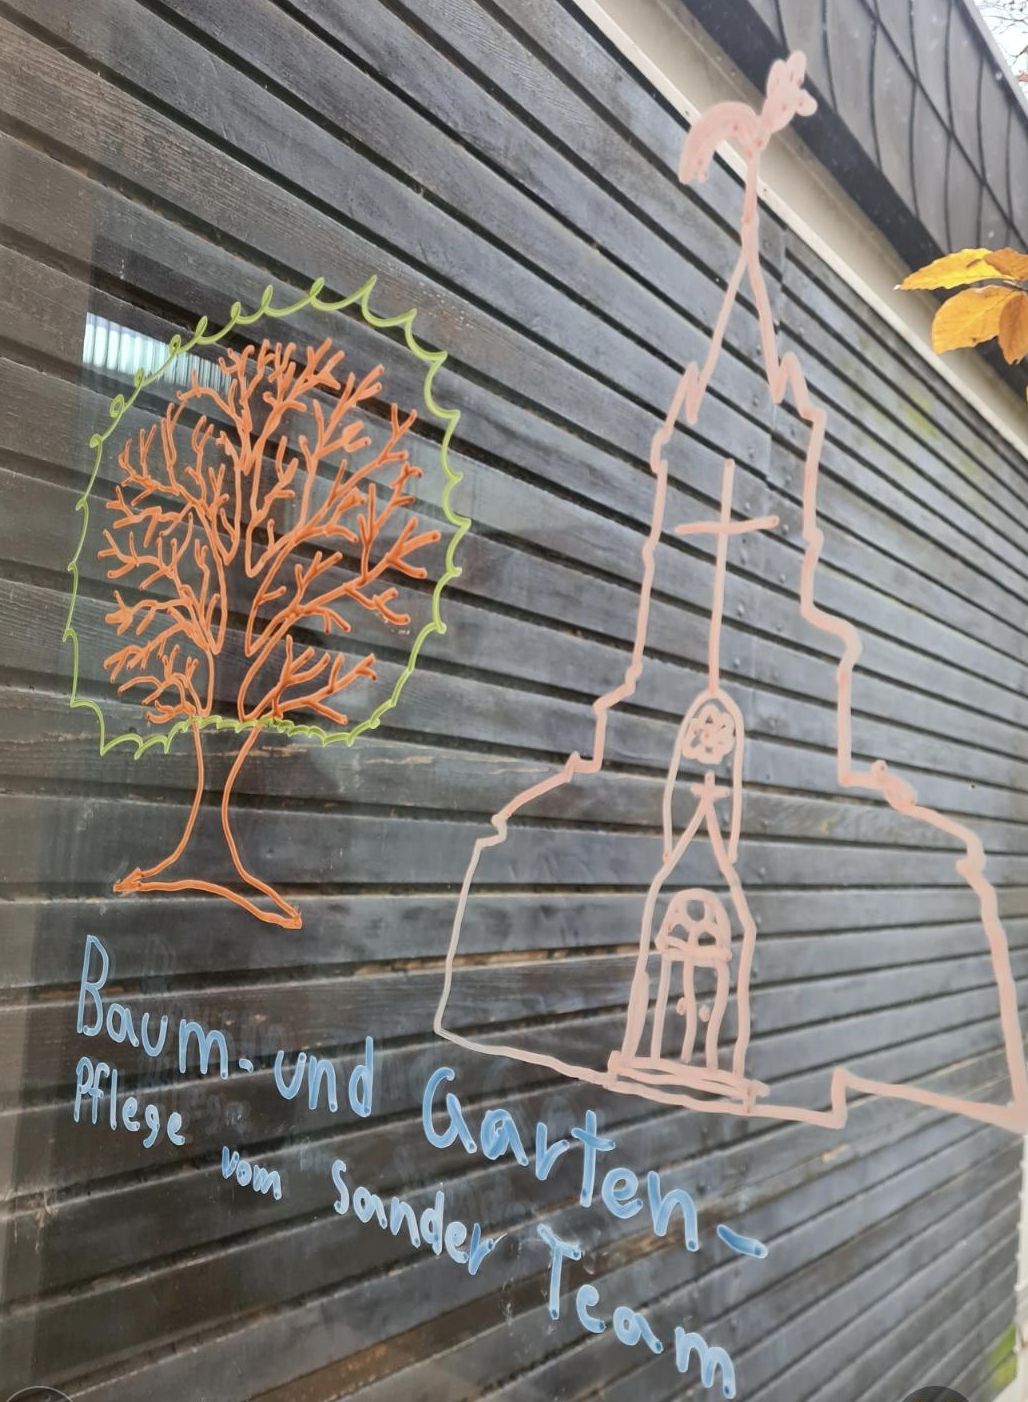 Baum- und Garten-
Pflege vom Sander Team